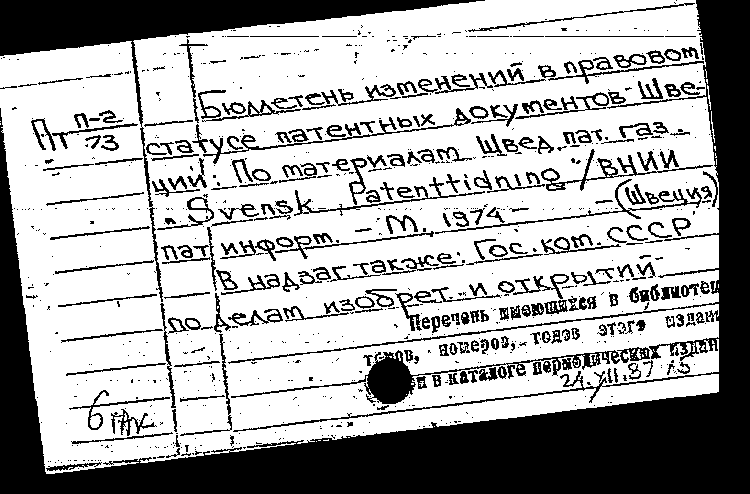 Пт П-2
73
Бюллетень изменений в правовом
статусе патентных документов Шве-
ции: По материалам Швед. пат. газ.
"Svensk Patenttidning"/ВНИИ
пат. информ. - М., 1974 - - (Швеция)
В надзаг. также: Гос. ком. СССР
по делам изобрет. и открытий
Перечень имеющихся в библиотек
номеров, годов этого издани
в каталоге периодических издан
24.VII.87
6